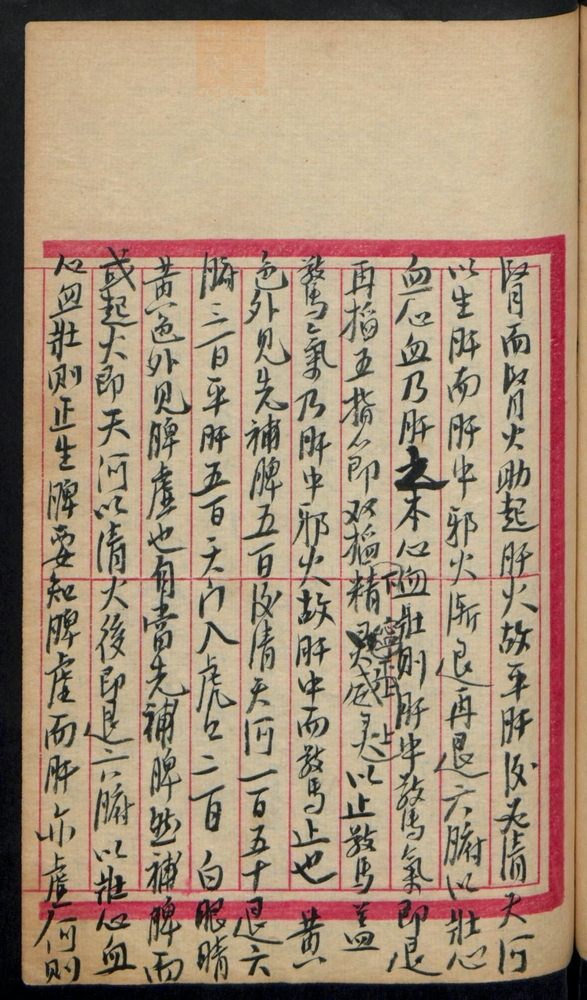 腎而腎火助起肝火故平肝後必清天河
以生肝而肝中邪火漸退再退六腑以壯心
血心血乃肝之本心血壯則肝中驚氣即退
再掐五指節双掐精威灵以止驚蓋
驚氣乃肝中邪火故肝中而驚止也 黄
色外見先補脾五百後清天河一百五十退六
腑三百平肝五百天门入虎口二百 白眼睛
黄色外見脾虚也自當先補脾然補脾而
或起火即天河以清火後即退六腑以壯心血
心血壯則正生脾要知脾虚而肝亦虚何則